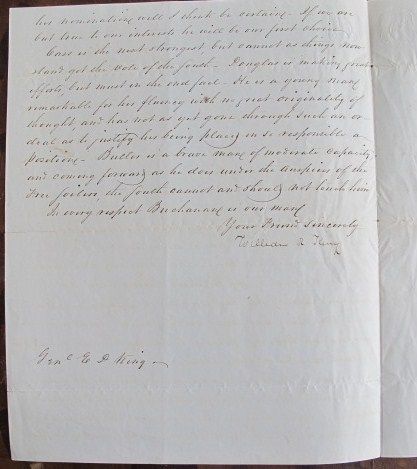 his nomination will I think be certain - If we are
but true to our interests he will be our first choice
Cass is the next strongest, but cannot as things now
stand get the vote of the South - Douglas is making great
efforts, but must in the end fail - He is a young man
remarkable for his fluency with no great originality of
thought, and has not as yet gone through such an or-
deal as to justify his being placed in so responsible a
position - Butler is a brave man of moderate capacity
and coming forward as he does under the auspices of the
Free soilers, the South cannot and should not touch him
In every respect Buchanan is our man
Your Friend Sincerely
William R King
Genl E D King